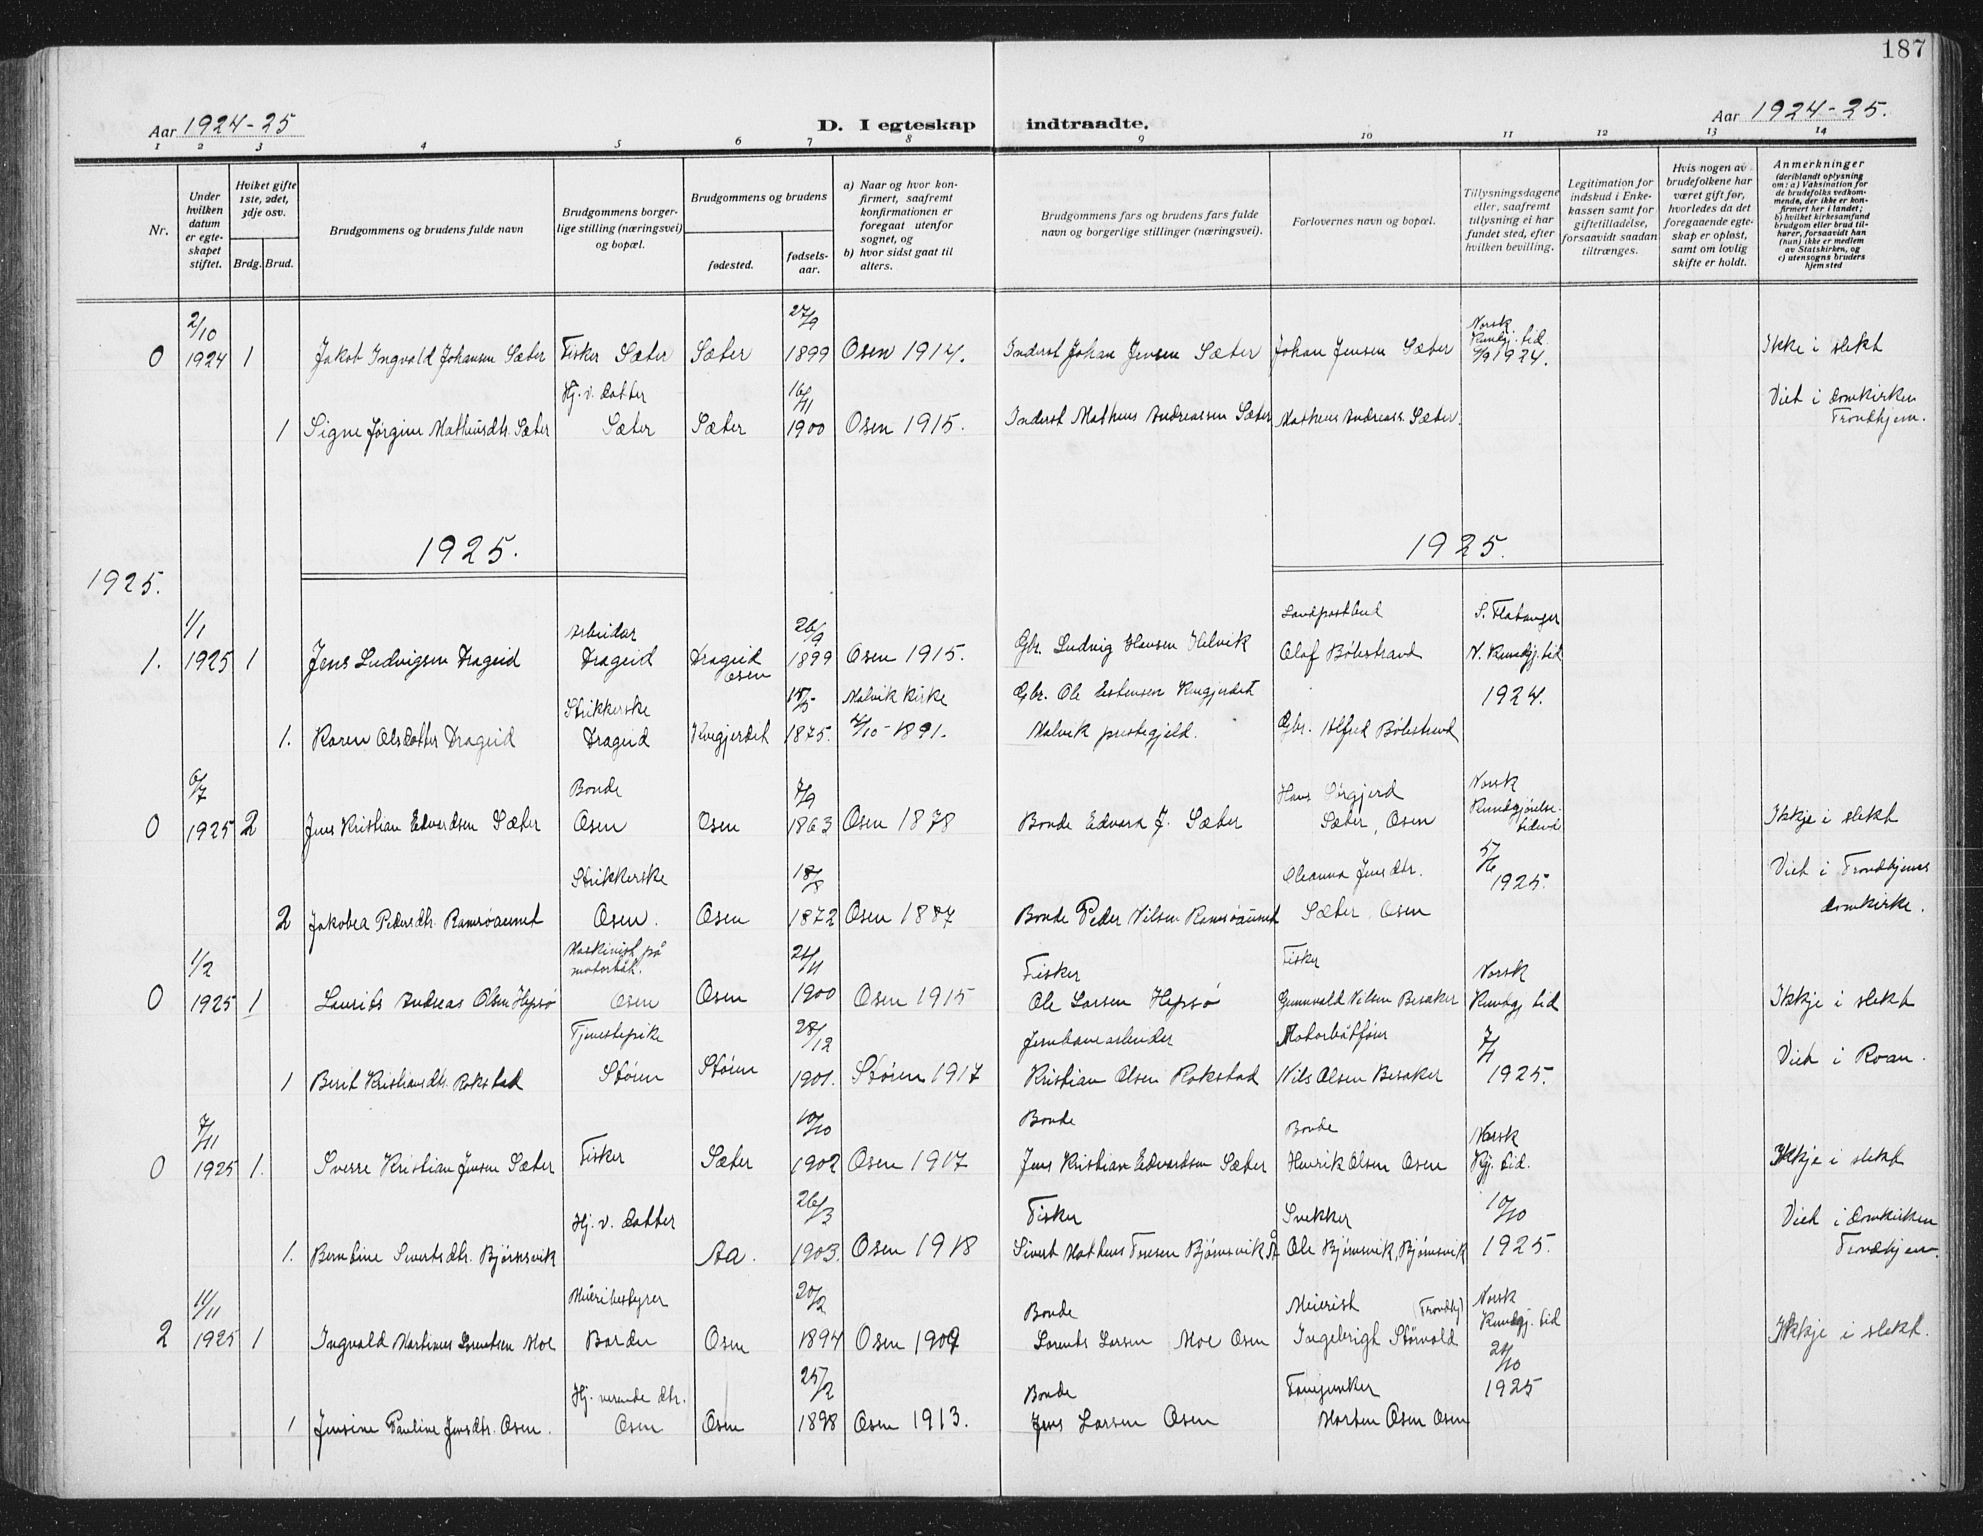 187
Aar 1924-25
D. I egteskap indtraadte.
Aar 1924-25.
1 2 3 4 5 6 7 8 9 10 11 12 13 14
Nr.
Under hvilken datum er egteskapet stiftet.
Hviket gifte 1ste, 2det, 3dje osv.
Brdg. Brud.
Brudgommens og brudens fulde navn
Brudgommens borgerlige stilling (næringsvei) og bopæl.
Brudgommens og brudens
fødested.
fødselsaar.
a) Naar og hvor konfirmert, saafremt konfirmationen er foregaat utenfor sognet, og
b) hvor sidst gaat til alters.
Brudgommens fars og brudens fars fulde navn og borgerlige stillinger (næringsvei).
Forlovernes navn og bopæl.
Tillysningsdagene eller, saafremt tillysning ei har fundet sted, efter hvilken bevilling.
Legitimation for indskud i Enkekassen samt for giftetilladelse, forsaavidt saadan tiltrænges.
Hvis nogen av brudefolkene har været gift før, hvorledes da det foregaaende egteskap er opløst, samt om lovlig skifte er holdt.
Anmerkninger
(deriblandt oplysning om: a) Vaksination for de brudefolks vedkommende, der ikke er konfirmert her i landet;
b) hvilket kirkesamfund brudgom eller brud tilhører, forsaavidt han (hun) ikke er medlem av Statskirken, og
c) utensogns bruders hjemsted
2/10 27/9 Norsk
0 1924 1 Jakob Ingvald Johansen Sæter Fisker Sæter Sæter 1899 Osen 1914. Inderst Johan Jensen Sæter Johan Jensen Sæter Kundgj. tid. 6/9 1924. Ikke i slekt
Hj. v. datter 16/11 Viet i domkirken
1 Signe Jørgine Matheusdtr. Sæter Sæter Sæter 1900 Osen 1915. Inderst Matheus Andreassen Sæter Matheus Andreass. Sæter. Trondhjem.
1925. 1925.
1925.
1/1 Arbeidar 26/9 Landpostbud S. Flatanger
1. 1925 1 Jens Ludvigsen Drageid Drageid Drageid Osen 1899 Osen 1915. Gbr. Ludvig Hansen Helvik Olaf Bølestrand N. Kundgj. tid
Strikkerske 15/5 Malvik kirke Gbr. Ole Estensen Kvigjerdet 1924.
1. Karen Olsdatter Drageid Drageid Kvigjerdet 1875. 4/10-1891. Malvik prestegjeld. Gbr. Alfred Bølestrand
6/7 Bonde 7/9 Hans Sørgjerd Norsk
0 1925 2 Jens Kristian Edvardsen Sæter Osen Osen 1863 Osen 1878 Bonde Edvard J. Sæter Sæter, Osen Kundgjørelsestidend Ikkje i slekt
Strikkerske 18/8 Oleanna Jensdtr. 5/6 1925. Viet i Trondhjems
2 Jakobea Pedersdtr. Ramsøaunet Osen. Osen 1872 Osen 1887 Bonde Peder Nilsen Ramsøaunet Sæter, Osen domkirke.
1/2 Maskinist på motorbåt. 24/11 Fisker Fisker Norsk
0 1925 1 Laurits Andreas Olsen Hepsø Osen Osen 1900 Osen 1915 Ole Larsen Hepsø Gunnvald Nilsen Besaker Kundgj tid Ikkje i slekt
Tjenestepike 28/12 Jernbanearbeider Motorbåtfører 7/1
1 Berit Kristiansdtr. Rokstad Støren Støren 1901. Støren 1917 Kristian Olsen Rokstad Nils Olsen Besaker 1925. Viet i Roan.
7/11 10/10 Bonde Bonde Norsk
0 1925 1. Sverre Kristian Jensen Sæter Fisker Sæter 1902 Osen 1917 Jens Kristian Edvardsen Sæter Henrik Olsen Osen Kgj. tid. Ikkje i slekt
Hj. v. datter 26/3 Fisker Snekker 10/10 Viet i domkirken
1. Berntine Sivertsdtr. Bjørnsvik Aa. 1903. Osen 1918 Sivert Matheus Tonesen Bjørnsvik Å Ole Bjørnsvik, Bjørnsvik 1925. Trondhjem.
11/11 Meieribestyrer 20/2 Bonde Meierist (Trondhj) Norsk
2 1925 1 Ingvald Martinus Lorentsen Moe Bardu Osen 1894 Osen 1909 Lorents Larsen Moe Osen Ingebrigt Størvold Kundgj. tid Ikkje i slekt.
Hj. verende dtr. 25/2 Bonde Fanejunker 20/10 1925
1 Jensine Pauline Jensdtr. Osen. Osen Osen 1898 Osen 1913. Jens Larsen Osen Morten Osen Osen